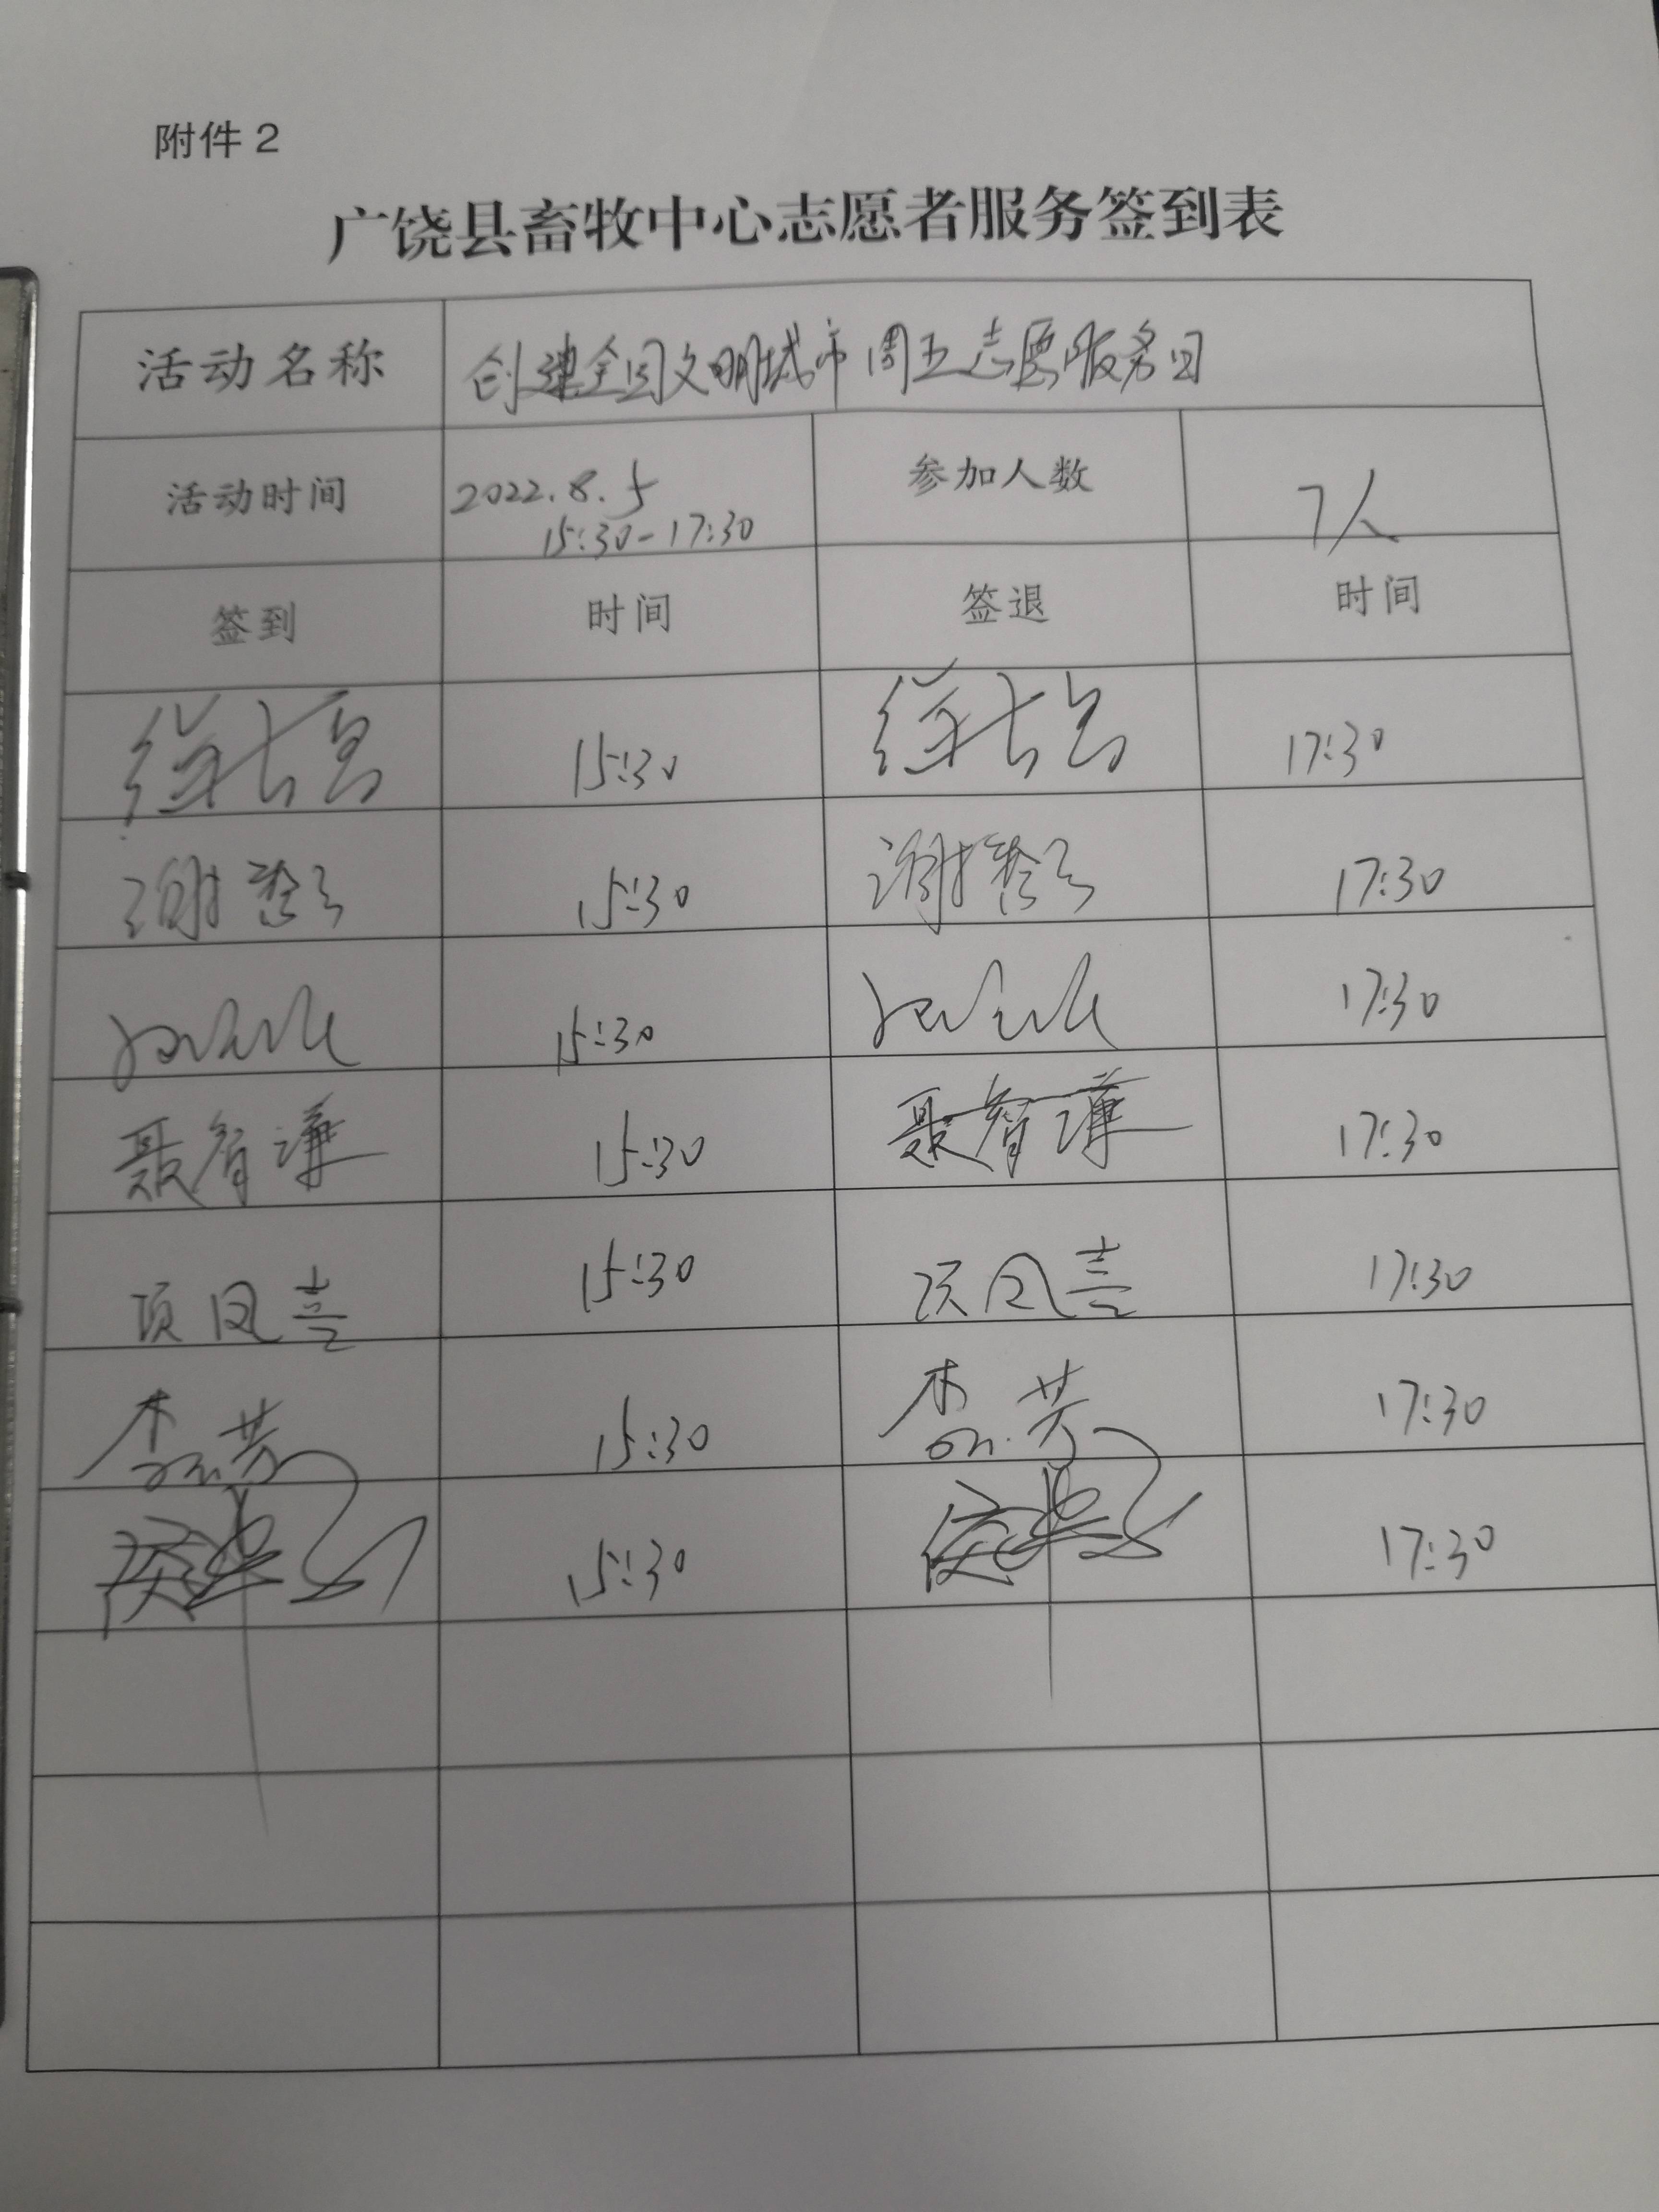 附件2
广饶县畜牧中心志愿者服务签到表
活动名称 创建全国文明城市周五志愿服务日
活动时间 2022.8.5 参加人数 7人
15:30-17:30
签到 时间 签退 时间
15:30 17:30
谢 15:30 谢 17:30
15:30 17:30
聂智谦 15:30 聂智谦 17:30
项凤喜 15:30 项凤喜 17:30
李芳 15:30 李芳 17:30
15:30 17:30